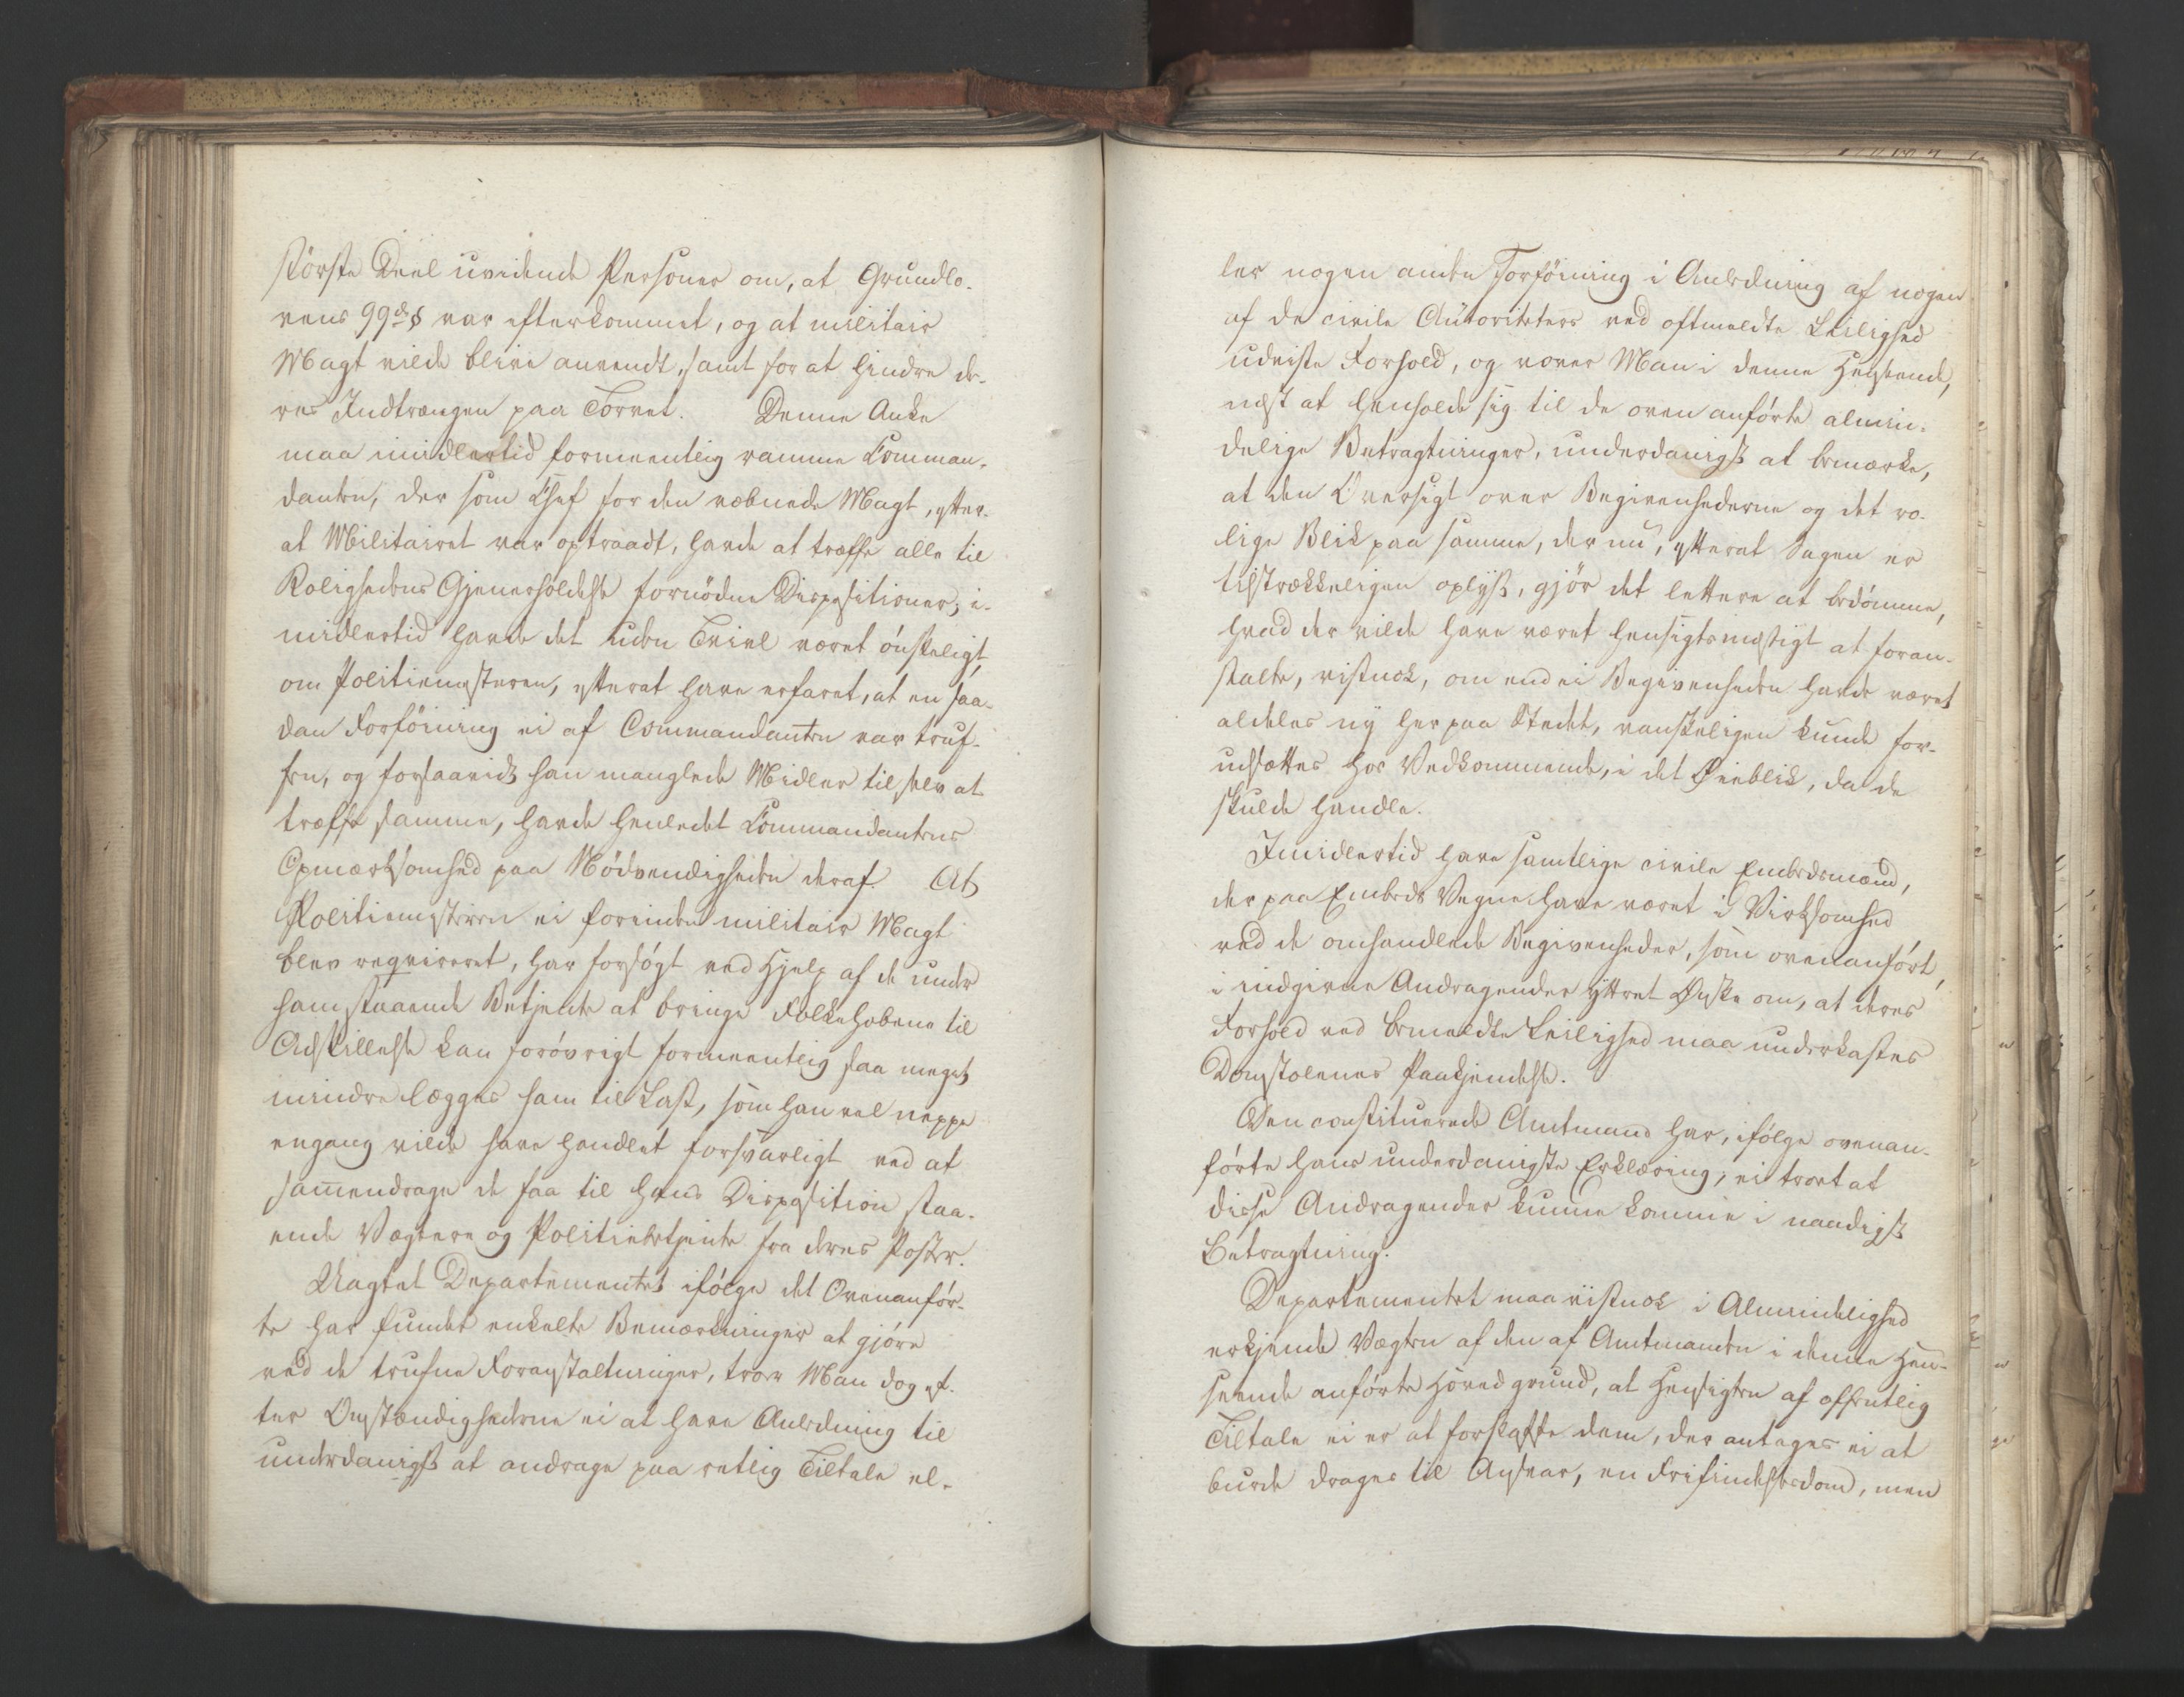 største Deel uvidende Personer om, at Grundlo-
vens 99de § var efterkommet, og at militair
Magt vilde blive anvendt, samt for at hindre de-
res Indtrængen paa Torvet. Denne Anke
maa imidlertid formeentlig ramme Comman-
danten, der som Chef for den væbnede Magt, efter-
at Militairet var optraadt, havde at træffe alle til
Rolighedens Gjenerholdelse fornødne Dispositioner; i-
midlertid havde det uden Tvivl været ønskeligt,
om Politiemesteren, efterat have erfaret, at en saa-
dan Forføining ei af Commandanten var truf-
fen, og forsaavidt han manglede Midler til selv at
træffe samme, havde henledet Commandantens
Opmærksomhed paa Nødvendigheden deraf. At
Politiemesteren ei forinden militair Magt
blev reqvireret, har forsøgt ved Hjelp af de under
ham staaende Betjente at bringe Folkehobene til
Adskillelse kan forøvrigt formeentlig saa meget
mindre lægges ham til Last, som han vel neppe
engang vilde have handlet forsvarligt ved at
sammendrage de faa til hans Disposition staa-
ende Vægtere og Politiebetjente fra deres Poster.
Uagtet Departementet ifølge det Ovenanfør-
te har fundet enkelte Bemærkninger at gjøre
ved de trufne Foranstaltninger, troer Man dog ef-
ter Omstændighederne ei at have Anledning til
underdanigst at andrage paa retlig Tiltale el-
ler nogen anden Forføining i Anledning af nogen
af de civile Autoriteters ved oftmeldte Leilighed
udviste Forhold, og vover Man i denne Henseende,
næst at henholde sig til de oven anførte almin-
delige Betragtninger, underdanigst at bemærke,
at den Oversigt over Begivenhederne og det ro-
lige Blik paa samme, der nu, efterat Sagen er
tilstrækkeligen oplyst, gjør det lettere at bedømme,
hvad der vilde have været hensigtsmæssigt at foran-
stalte, vistnok, om end ei Begivenheden havde været
aldeles ny her paa Stedet, vanskeligen kunde for-
udsættes hos Vedkommende, i det Øieblik, da de
skulde handle.
Imidlertid have samtlige civile Embedsmænd,
der paa Embeds Vegne have været i Virksomhed
ved de omhandlede Begivenheder, som ovenanført,
i indgivne Andragender yttret Ønske om, at deres
Forhold ved bemeldte Leilighed maa underkastes
Domstolenes Paakjendelse.
Den constituerede Amtmand har, ifølge ovenan-
førte hans underdanigste Erklæring, ei troet at
disse Andragender kunne komme i naadigst
Betragtning.
Departementet maa vistnok i Almindelighed
erkjende Vægten af den af Amtmanden i denne Hen-
seende anførte Hovedgrund, at Hensigten af offentlig
Tiltale ei er at forskaffe dem, der antages ei at
burde drages til Ansvar, en Frifindelsesdom, men